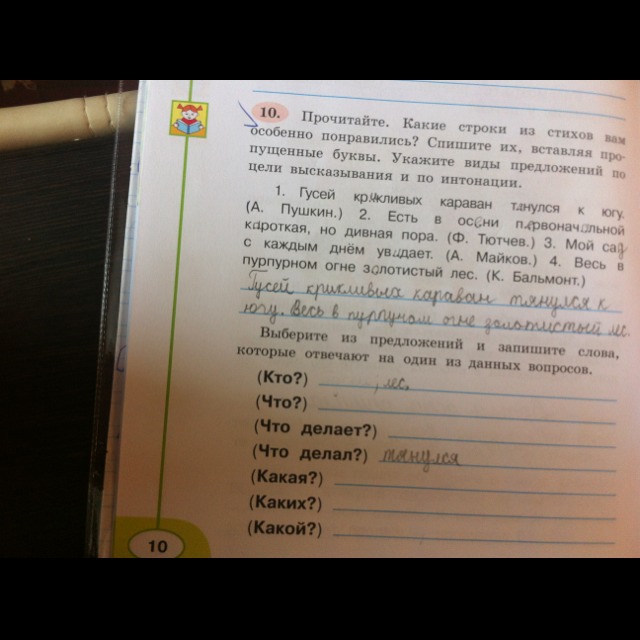 10. Прочитайте. Какие строки из стихов вам
особенно понравились? Спишите их, вставляя про-
пущенные буквы. Укажите виды предложений по
цели высказывания и по интонации.
1. Гусей крикливых караван тянулся к югу.
(А. Пушкин.) 2. Есть в осени первоначальной
короткая, но дивная пора. (Ф. Тютчев.) 3. Мой сад
с каждым днём увядает. (А. Майков.) 4. Весь в
пурпурном огне золотистый лес. (К. Бальмонт.)
Гусей крикливых караван тянулся к
югу. Весь в пурпуном огне золотистый лес.
Выберите из предложений и запишите слова,
которые отвечают на один из данных вопросов.
(Кто?) , лес.
(Что?)
(Что делает?)
(Что делал?) тянулся
(Какая?)
(Каких?)
(Какой?)
10